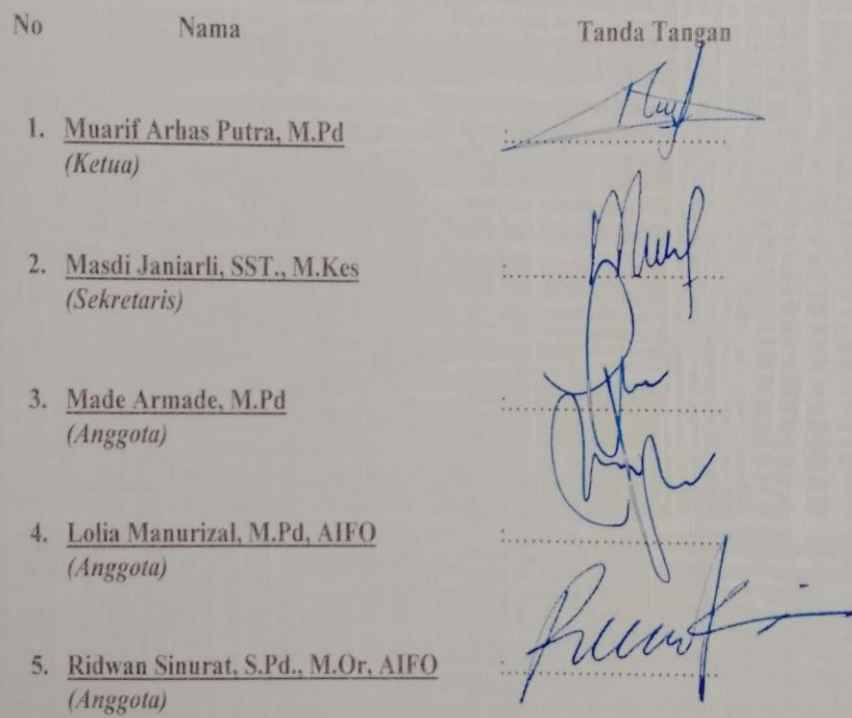 No Nama Tanda Tangan
1. Muarif Arhas Putra, M.Pd
(Ketua)
2. Masdi Janiarli, SST., M.Kes
(Sekretaris)
3. Made Armade, M.Pd
(Anggota)
4. Lolia Manurizal, M.Pd, AIFO
(Anggota)
5. Ridwan Sinurat, S.Pd., M.Or, AIFO
(Anggota)